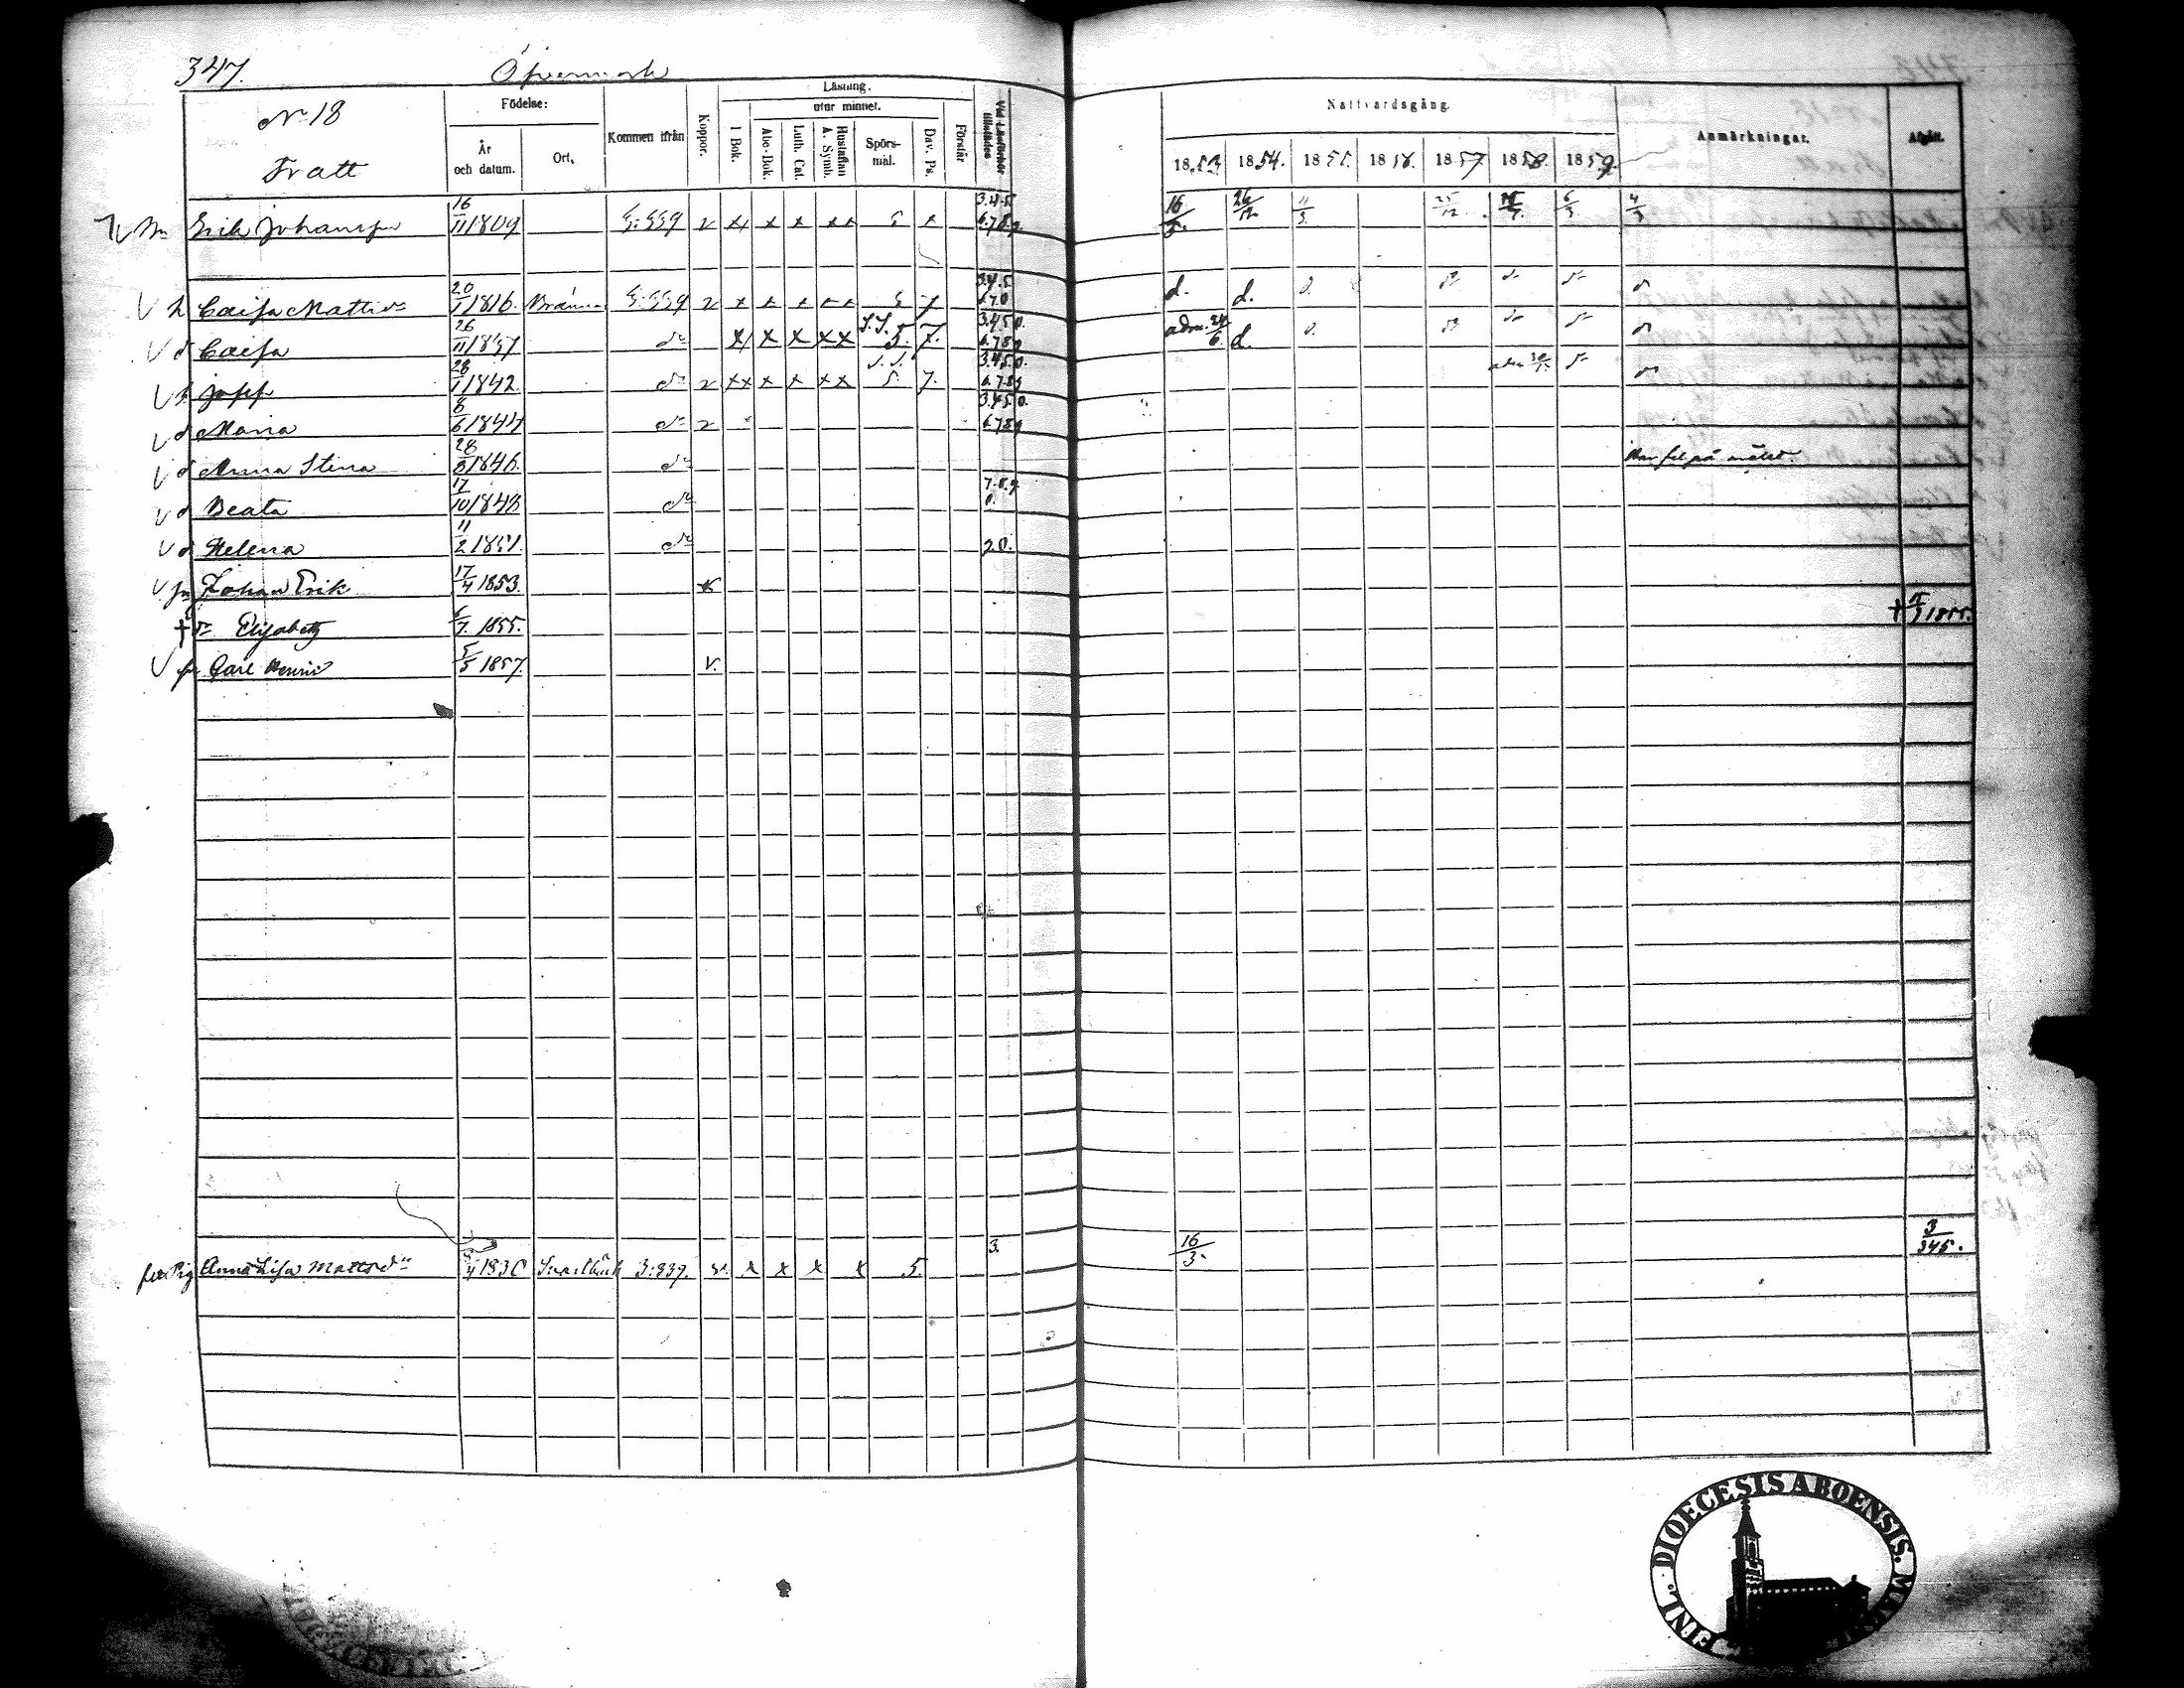 347. Öfvermark
No 18
Tratt
Födelse:
År och datum.
Ort,
Kommen ifrån
Koppor.
Läsning.
utur minnet.
I Bok.
Abc-Bok.
Luth. Cat.
Hustaflan A. Symb.
Spörs-mål.
Dav. Ps.
Förstår
Vid Läseförhör tillstädes
Nattvardsgång.
1853. 1854. 1855. 1856. 1857. 1858. 1859.
Anmärkningar.
Afgått.
Erik Johansson 16/11 1809 x x x x x x 3.4.5 6.7.8.9. 16/5. 26/12 11/3. 25/12. 6/3 4/3
h Caisa Mattsdr 20/1 1816. x x x x x 5 7 3.4.5. 6.7.0 d. d. d.
d Caisa 26/11 1837 do x x x x x 5. 7. 3.4.5.0. 6.7.8.9 adm. 24/6. d. d.
28/1 1842. do x x x x x x 5. 7. 3.4.5.0. 6.7.8.9
d Maria 8/6 1844 do 3.4.5.0. 6.7.8.9
d Anna Stina 28/8 1846. do Har fel på målet.
d Beata 17/10 1848 do 7.8.9 0.
d Helena 11/2 1851. do 20.
Johan Erik 17/4 1853
† Elisabeth 6/7. 1855. † 1855.
Carl Henric 5/5 1857. v.
Pig Anna Lisa Mattsdr 1830 Svartbäck 3:839. v. x x x x 5. 3. 16/3. 3/345.
FINL. DIOECESIS ABOENSIS.